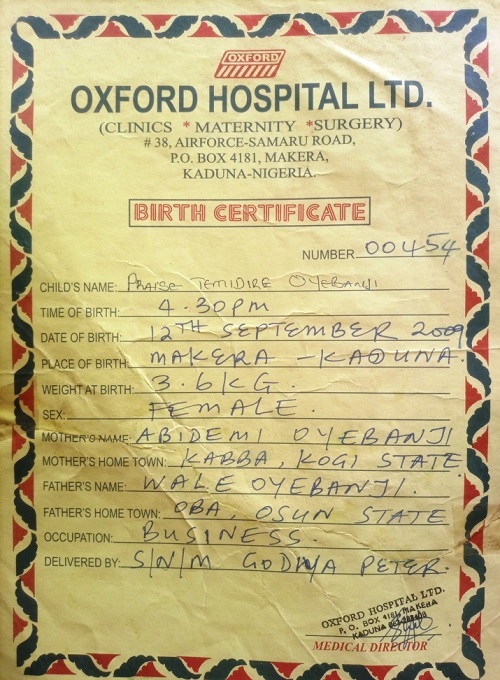 OXFORD
OXFORD HOSPITAL LTD.
(CLINICS * MATERNITY *SURGERY)
# 38, AIRFORCE-SAMARU ROAD,
P.O. BOX 4181, MAKERA,
KADUNA-NIGERIA.
BIRTH CERTIFICATE
NUMBER 00454
CHILD'S NAME: PRAISE TEMIDIRE OYEBANJI
TIME OF BIRTH: 4.30PM
DATE OF BIRTH: 12TH SEPTEMBER 2009
PLACE OF BIRTH: MAKERA - KADUNA.
WEIGHT AT BIRTH: 3.6KG.
SEX: FEMALE.
MOTHER'S NAME: ABIDEMI OYEBANJI
MOTHER'S HOME TOWN: KABBA, KOGI STATE
FATHER'S NAME: WALE OYEBANJI.
FATHER'S HOME TOWN: OBA, OSUN STATE
OCCUPATION: BUSINESS.
DELIVERED BY: S/N/M GODIYA PETER.
OXFORD HOSPITAL LTD.
P. O. BOX 4181, MAKERA
KADUNA
MEDICAL DIRECTOR